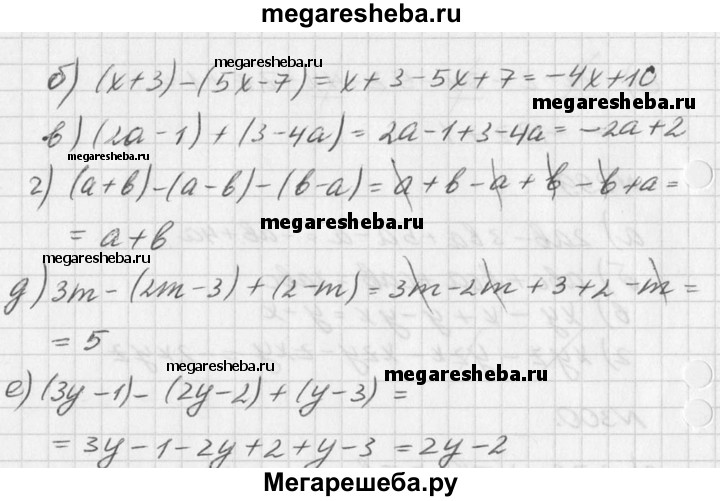 megaresheba.ru
megaresheba.ru
б) (x+3)-(5x-7)=x+3-5x+7=-4x+10
megaresheba.ru
в) (2a-1)+(3-4a)=2a-1+3-4a=-2a+2
megaresheba.ru
г) (a+b)-(a-b)-(b-a)=a+b-a+b-b+a=
megaresheba.ru
=a+b
megaresheba.ru
д) 3m-(2m-3)+(2-m)=3m-2m+3+2-m=
=5
megaresheba.ru
megaresheba.ru
е) (3y-1)-(2y-2)+(y-3)=
=3y-1-2y+2+y-3=2y-2
Мегарешеба.ру